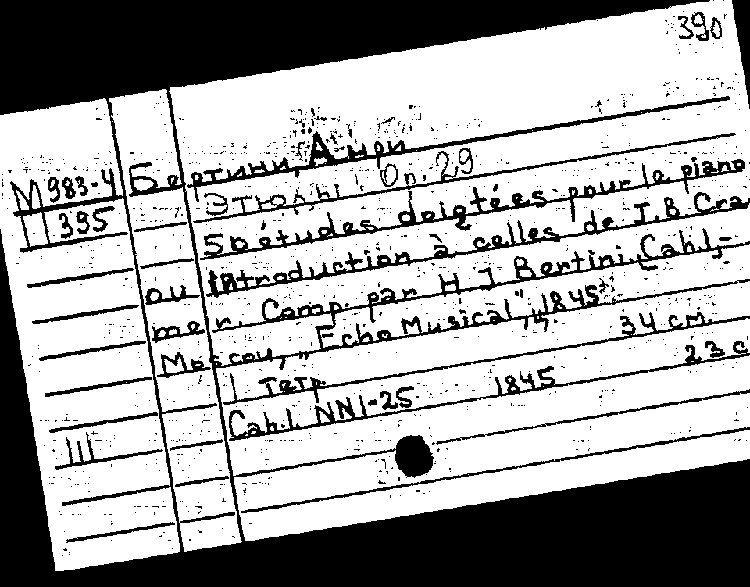 390
М 983-4 Бертини, Анри
11395 Этюды Op. 29
50 études doigtées pour le piano
ou introduction à celles de J.B Cra
mer. Comp. par H J Bertini. Cah.1,-
Moscou, „Echo Musical", 1845
34 см.
1 тетр. 23 с
Cah.1. NN1-25 1845
III